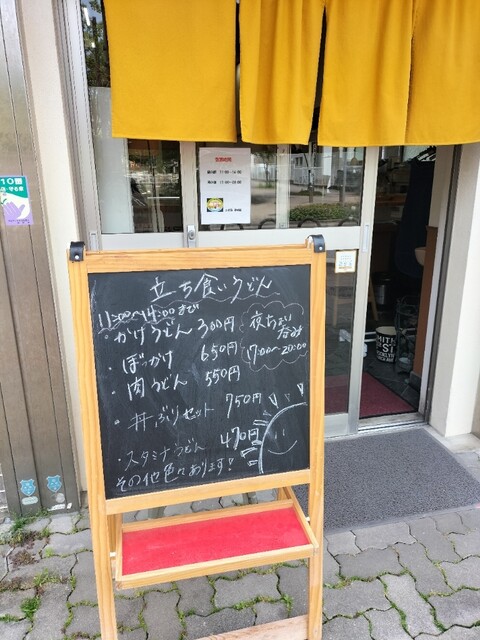 営業時間
11:00~14:00
17:00~20:00
立ち食いうどん
11:00~14:00まで
・かけうどん 300円
・ぼっかけ 650円
・肉うどん 550円
・丼ぶりセット 750円
・スタミナうどん 470円
その他色々あります!
夜ちょい呑み
17:00~20:00